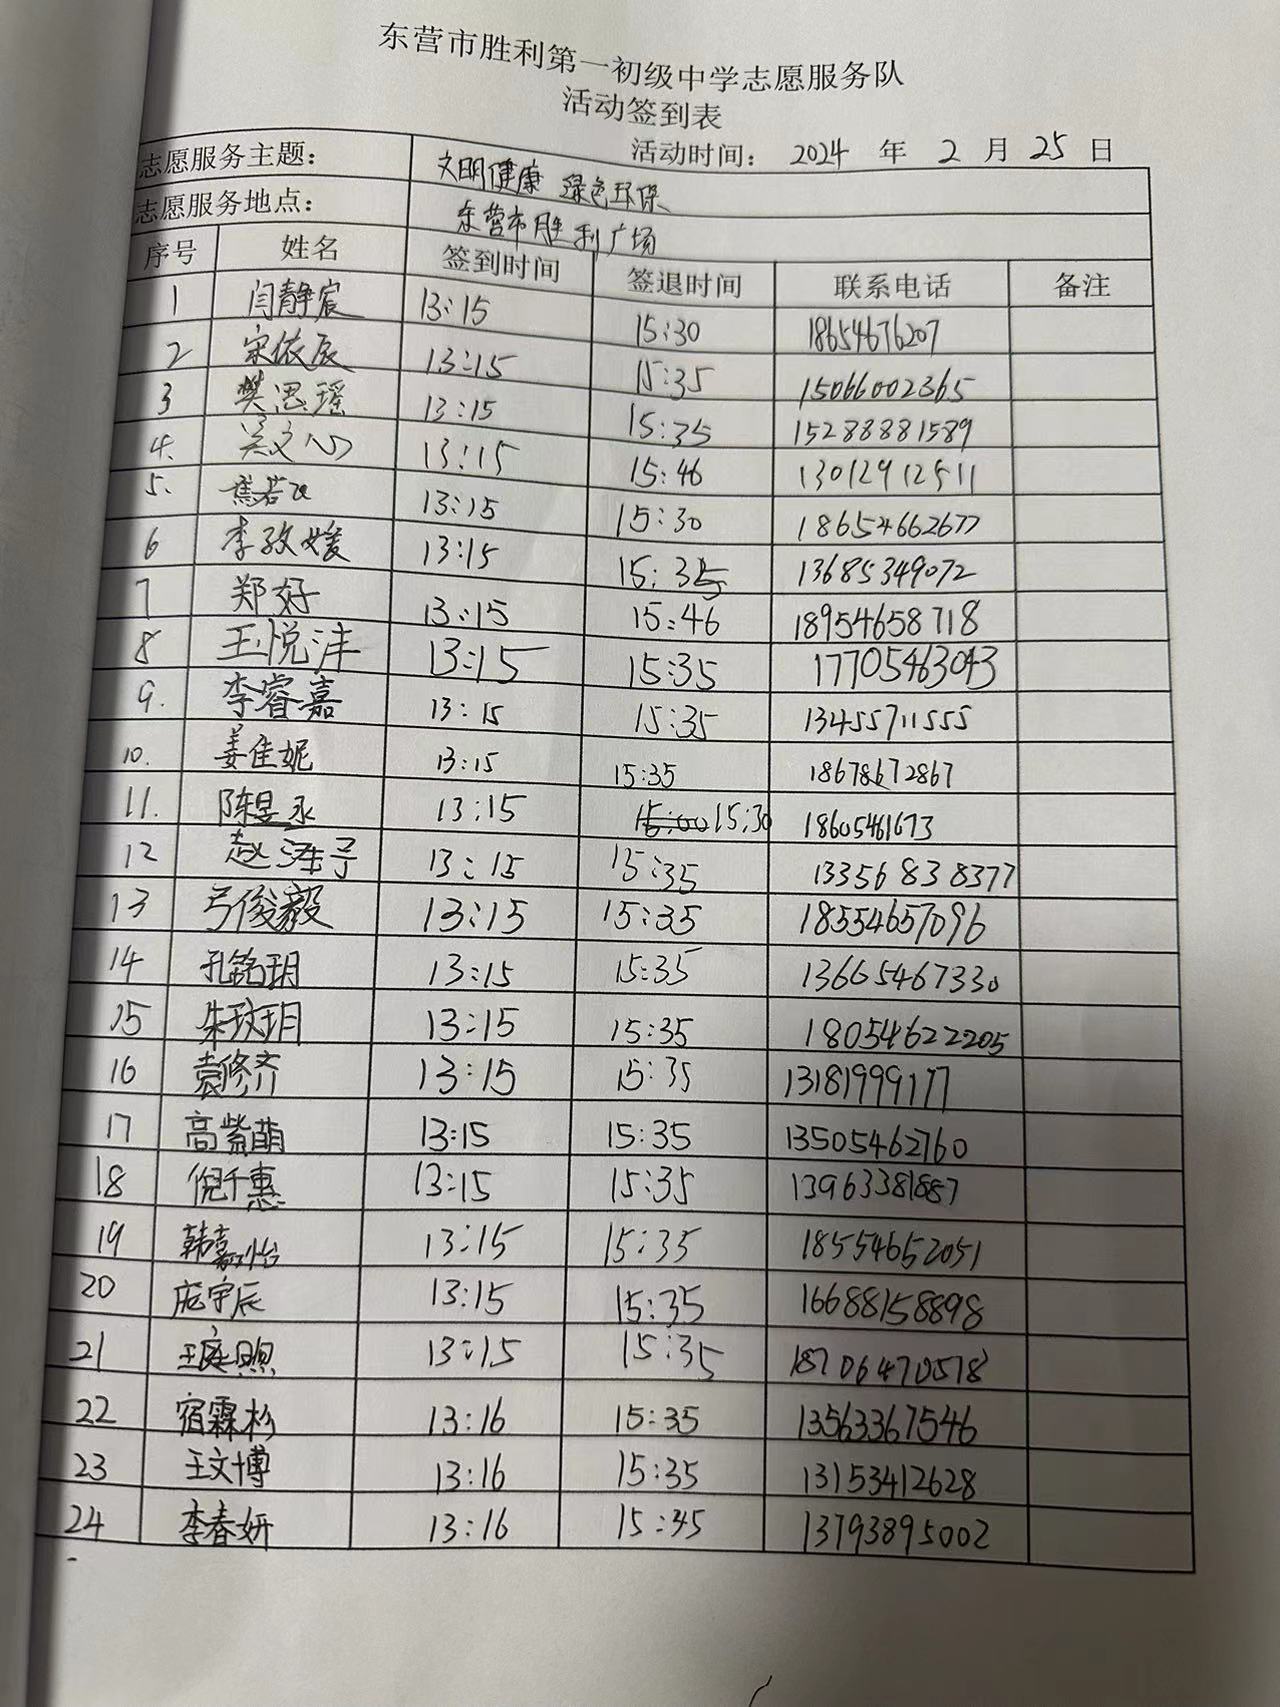 东营市胜利第一初级中学志愿服务队
活动签到表
活动时间： 2024 年 2 月 25 日
志愿服务主题： 文明健康 绿色环保
志愿服务地点： 东营市胜利广场
序号 姓名 签到时间 签退时间 联系电话 备注
1 闫静宸 13:15 15:30 18654676207
2 宋依辰 13:15 15:35 15066002365
3 樊思瑶 13:15 15:35 15288881589
4. 吴文心 13:15 15:46 13012912511
5. 焦若 13:15 15:30 18654662677
6 李孜媛 13:15 15:35 13685349072
7 郑好 13:15 15:46 18954658718
8 王悦沣 13:15 15:35 17705463043
9. 李睿嘉 13:15 15:35 13455711555
10. 姜佳妮 13:15 15:35 18678672867
11. 陈昱永 13:15 15:00 15:30 18605461673
12 赵 13:15 15:35 13356838377
13 弓俊毅 13:15 15:35 18554657096
14 孔铭玥 13:15 15:35 13665467330
15 朱玟玥 13:15 15:35 18054622205
16 袁修齐 13:15 15:35 13181999177
17 高紫萌 13:15 15:35 13505462760
18 倪千惠 13:15 15:35 13963381887
19 韩嘉怡 13:15 15:35 18554652051
20 庞宇辰 13:15 15:35 16688158898
21 王庭煦 13:15 15:35 18706470578
22 宿霖杉 13:16 15:35 13563367546
23 王文博 13:16 15:35 13153412628
24 李春妍 13:16 15:45 13793895002